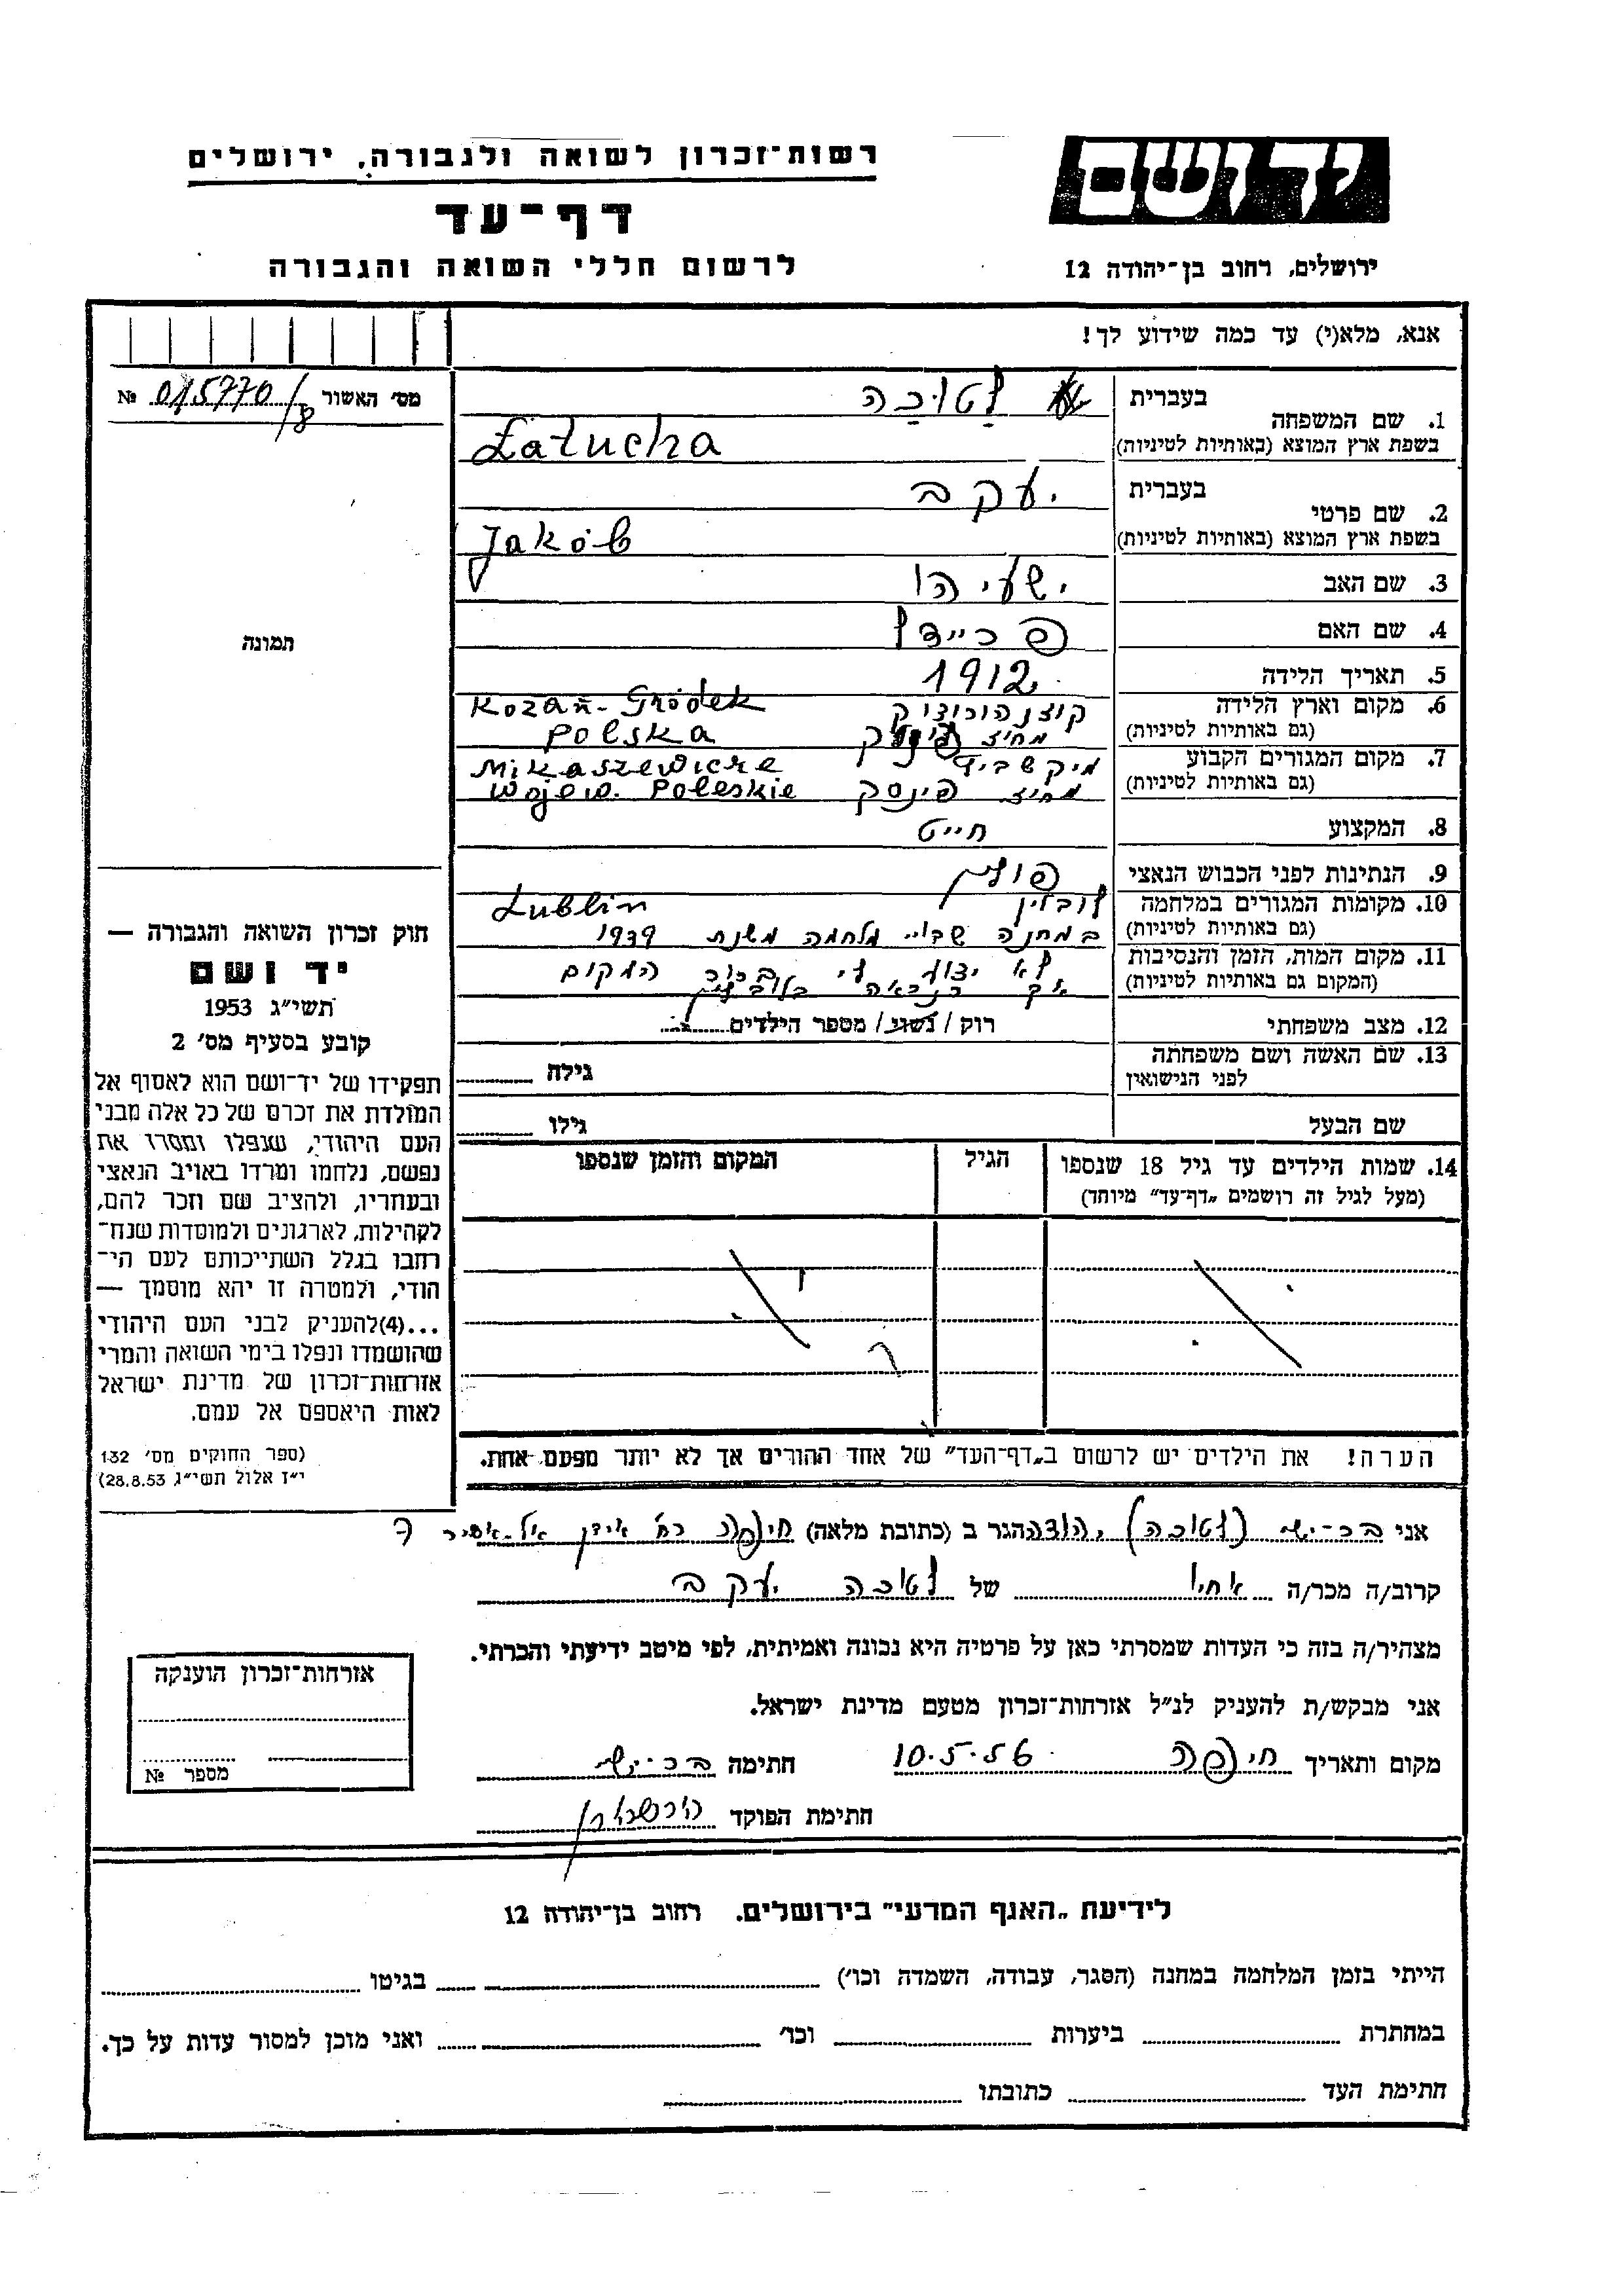 רשות-זכרון לשואה ולגבורה, ירושלים
יד ושם
דף-עד
לרשום חללי השואה והגבורה
ירושלים, רחוב בן-יהודה 12
אנא, מלא(י) עד כמה שידוע לך!
מס' האשור 015770/8 №
1. שם המשפחה
בעברית לטוכה
בשפת ארץ המוצא (באותיות לטיניות) Łatucha
2. שם פרטי
בעברית יעקב
בשפת ארץ המוצא (באותיות לטיניות) Jakób
3. שם האב ישעיהו
4. שם האם פריידל
תמונה
5. תאריך הלידה 1912
6. מקום וארץ הלידה קוז'נהורודוק Kozań-Gródek
(גם באותיות לטיניות) מחוז Polska
7. מקום המגורים הקבוע Mikaszewicze
(גם באותיות לטיניות) מחוז פינסק Wojew. Poleskie
8. המקצוע חייט
9. הנתינות לפני הכבוש הנאצי פולין
10. מקומות המגורים במלחמה לובלין Lublin
(גם באותיות לטיניות) במחנה שבויי מלחמה משנת 1939
11. מקום המות, הזמן והנסיבות לא ידוע לי המקום
(המקום גם באותיות לטיניות) אך כנראה בלובלין
12. מצב משפחתי רוק / נשוי / מספר הילדים
13. שם האשה ושם משפחתה
לפני הנישואין
גילה
שם הבעל
גילו
14. שמות הילדים עד גיל 18 שנספו
(מעל לגיל זה רושמים "דף-עד" מיוחד)
הגיל
המקום והזמן שנספו
הערה! את הילדים יש לרשום ב"דף-העד" של אחד ההורים אך לא יותר מפעם אחת.
חוק זכרון השואה והגבורה —
יד ושם
תשי"ג 1953
קובע בסעיף מס' 2
תפקידו של יד-ושם הוא לאסוף אל
המולדת את זכרם של כל אלה מבני
העם היהודי, שנפלו ומסרו את
נפשם, נלחמו ומרדו באויב הנאצי
ובעוזריו, ולהציב שם וזכר להם,
לקהילות, לארגונים ולמוסדות שנח-
רחבו בגלל השתייכותם לעם הי-
הודי, ולמטרה זו יהא מוסמך —
...(4)להעניק לבני העם היהודי
שהושמדו ונפלו בימי השואה והמרי
אזרחות-זכרון של מדינת ישראל
לאות היאספם אל עמם.
(ספר החוקים מס' 132
י"ז אלול תשי"ג 28.8.53)
אני (לטוכה) הגר ב (כתובת מלאה) חיפה רח'
קרוב/ה מכר/ה אחיו של לטוכה יעקב
מצהיר/ה בזה כי העדות שמסרתי כאן על פרטיה היא נכונה ואמיתית, לפי מיטב ידיעתי והכרתי.
אני מבקש/ת להעניק לנ"ל אזרחות-זכרון מטעם מדינת ישראל.
מקום ותאריך חיפה 10.5.56 חתימה
חתימת הפוקד
אזרחות-זכרון הוענקה
מספר №
לידיעת "האגף המדעי" בירושלים. רחוב בן-יהודה 12
הייתי בזמן המלחמה במחנה (הסגר, עבודה, השמדה וכו') בגיטו
במחתרת ביערות וכו' ואני מוכן למסור עדות על כך.
חתימת העד כתובתו